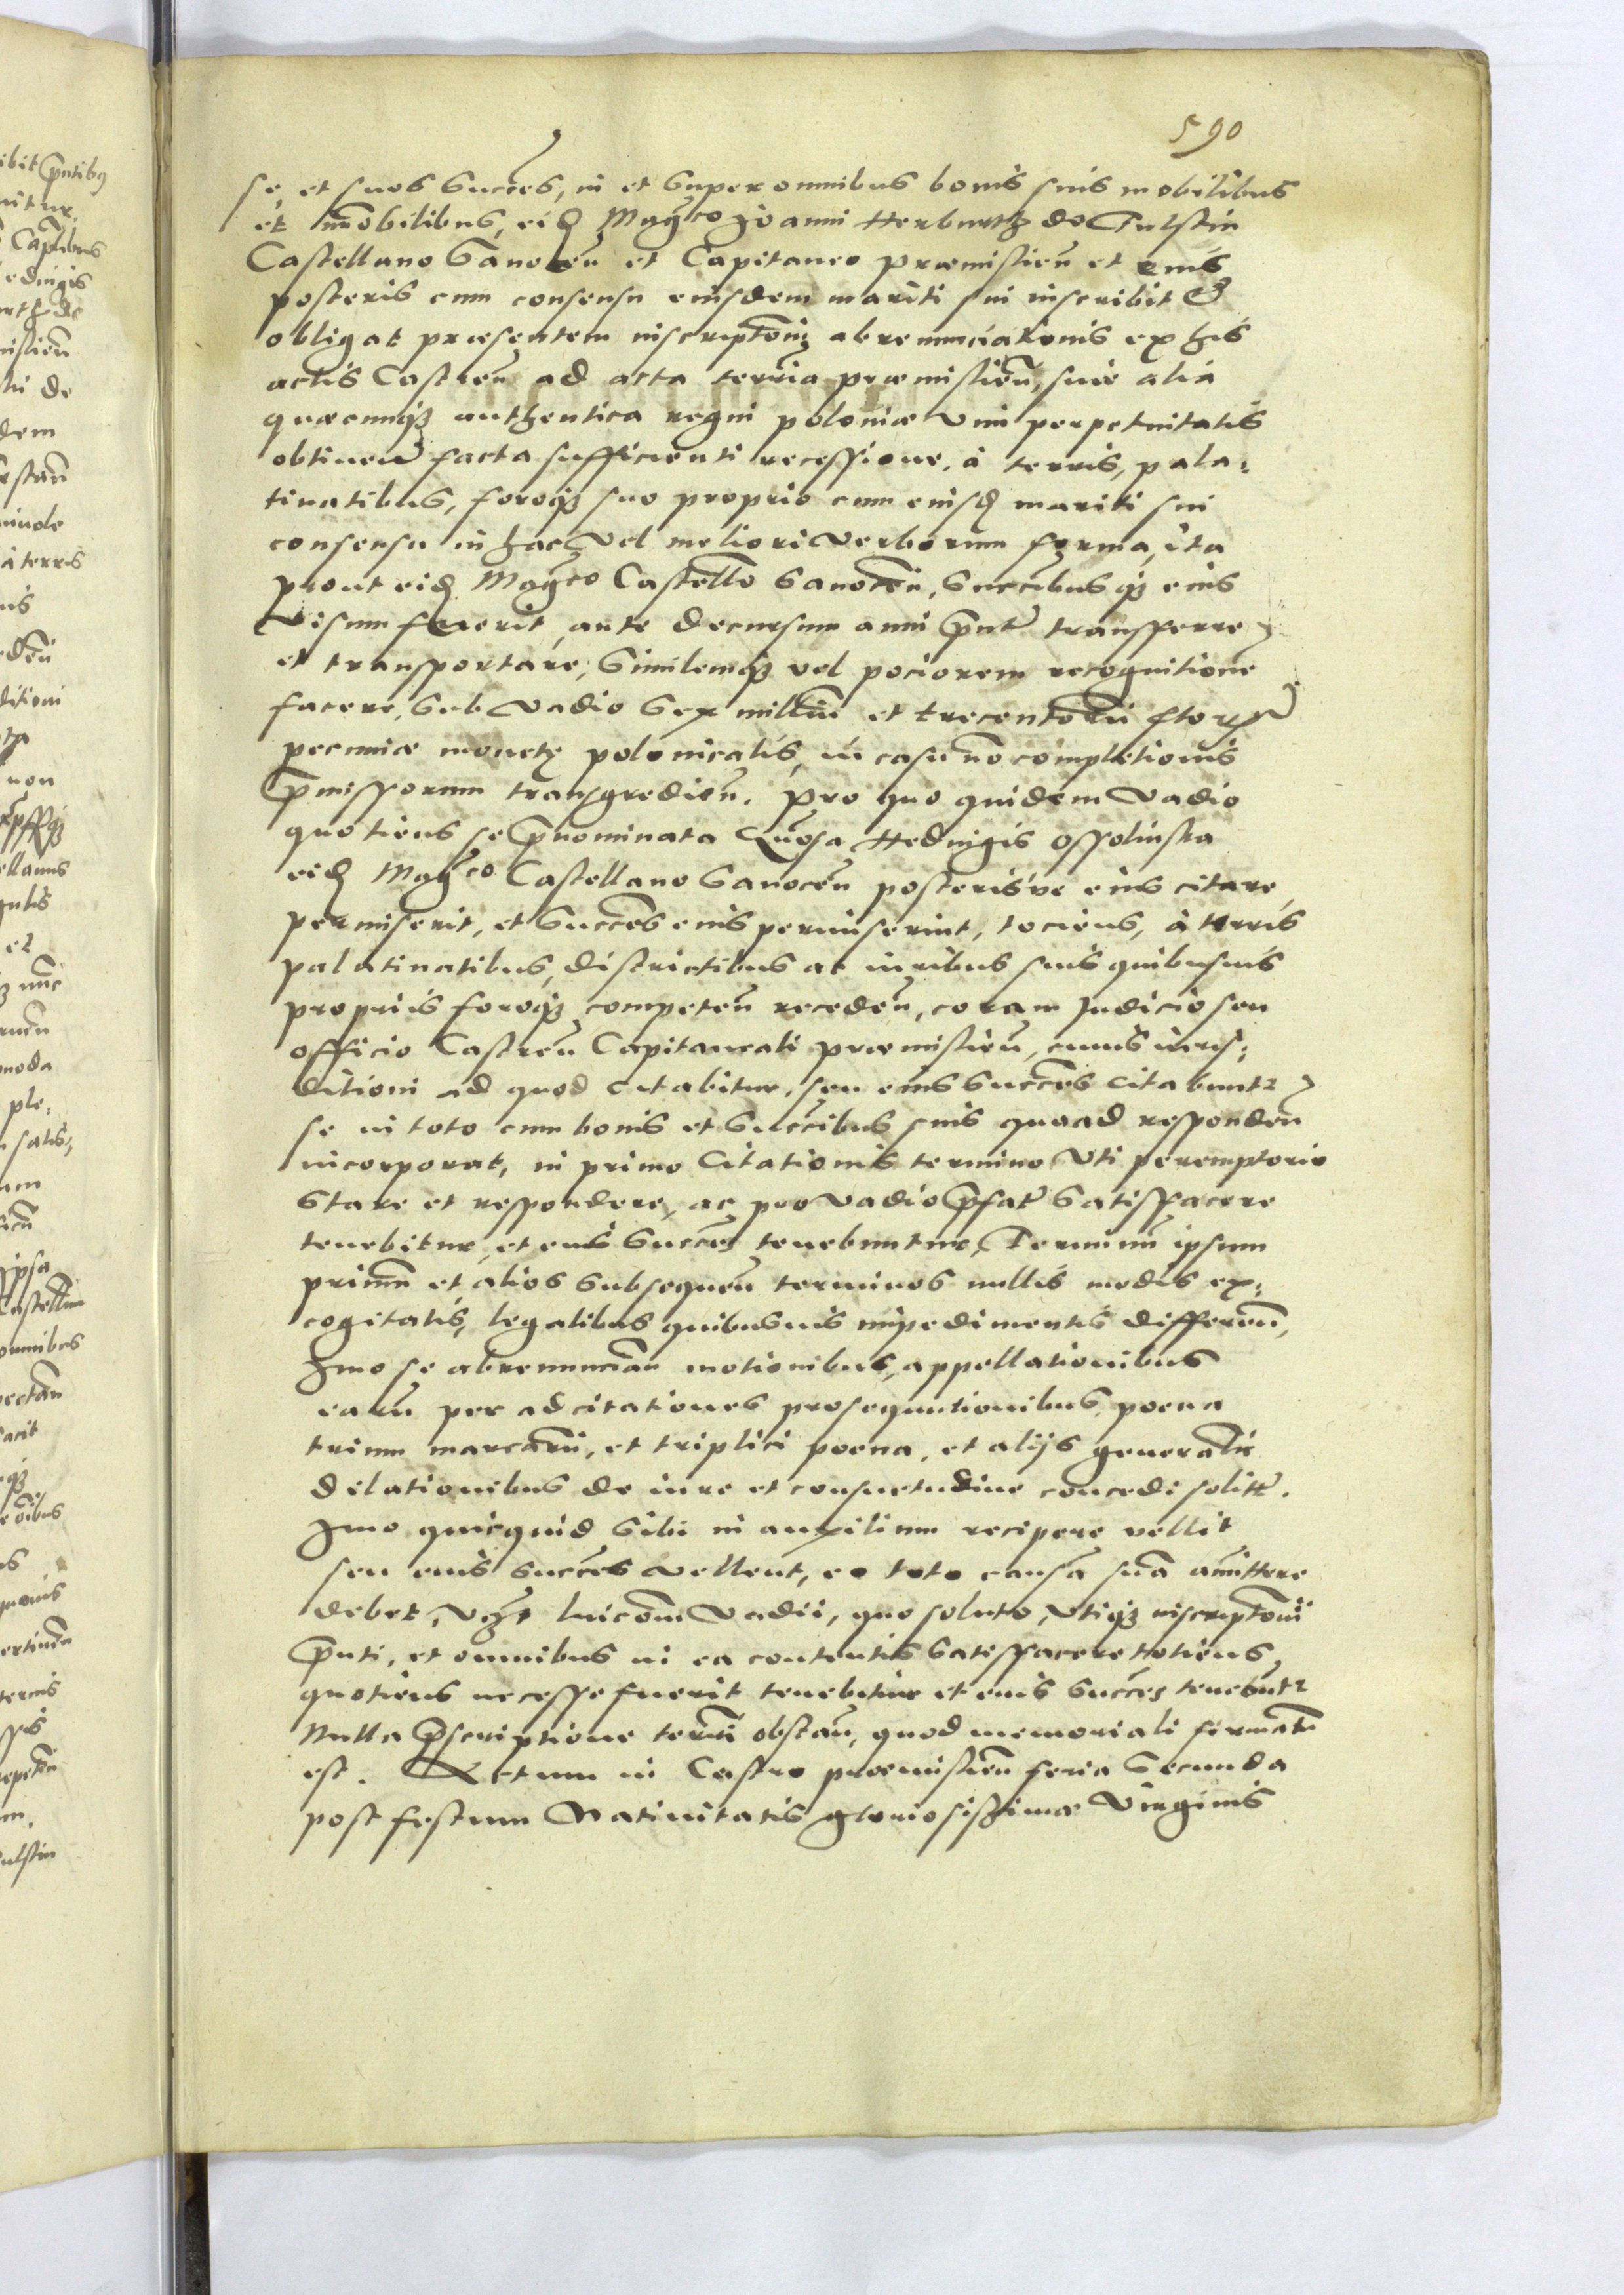 590
se, et suos Succes, in et Super omnibus bonis suis mobilibus
et imobilibus, eid Magco Joanni Herburth de Fulstin
Castellano Sanocen et Capitaneo præmislien et eius
posteris cum consensu eiusdem mariti sui inscribit et
obligat præsentem inscriptom abrenunciationis ex his
actis Castren ad acta terria præmislien, siue alia
quæcunq authentica regni poloniæ vim perpetuitatis
obtinen facta sufficienti recessione, à terris, pala:
tinatibus, foroq suo proprio cum eiusd mariti sui
consensu in hac vel meliori verborum forma, ita
prout eid Magco Castello Sanocen, Succibus q eius
visum fuerit, ante decursum anni pnt transferre
et transportare, Similemq vel pociorem recognitione
facere, Sub vadio Sex millm et trecentoru flor
pecuniæ monetę polonicalis, in casu no completionis
pmissorum transgredien. Pro quo quidem vadio
quotiens se pnominata Gnosa Hedvigis Ossolinska
eid Magco Castellano Sanocen posterisve eius citare
permiserit, et Succes eius permiserint, tociens, à terris
palatinatibus, districtibus ac iuribus suis quibusuis
propriis foroq competen receden, coram Judicio seu
officio Castren Capitaneali præmislien, cuius iuris:
ditioni ad quod citabitur, seu eius Succes citabunt
se in toto cum bonis et Succibus suis quoad responden
incorporat, in primo Citationis termino vti peremptorio
Stare et respondere, ac pro vadio pfat Satisfacere
tenebitur, et eius Succes tenebuntur, Terminu ipsum
primu et alios subsequen terminos nullis modis ex:
cogitatis, legalibus quibusuis impedimentis differen,
Imo se abrenuncian motionibus, appellationibus
earu per adcitationes prosequutionibus, poena
trium marcaru, et triplici poena, et aliis generalir
dilationibus de iure et consuetudine concedi solit.
Imo quicquid Sibi in auxilium recipere vellit
seu eius Succes vellent, eo toto causa sua amittere
debet, vz luicom vadii, quo soluto, vtiq inscriptoni
pnti, et omnibus in ea contentis Satisfacere totiens
quotiens necesse fuerit tenebitur et eius Succes tenebunt
Nulla pscriptione terri obstan, quod memoriali firmatu
est. Actum in Castro præmislien feria Secunda
post festum Natiuitatis gloriosissimæ Virginis